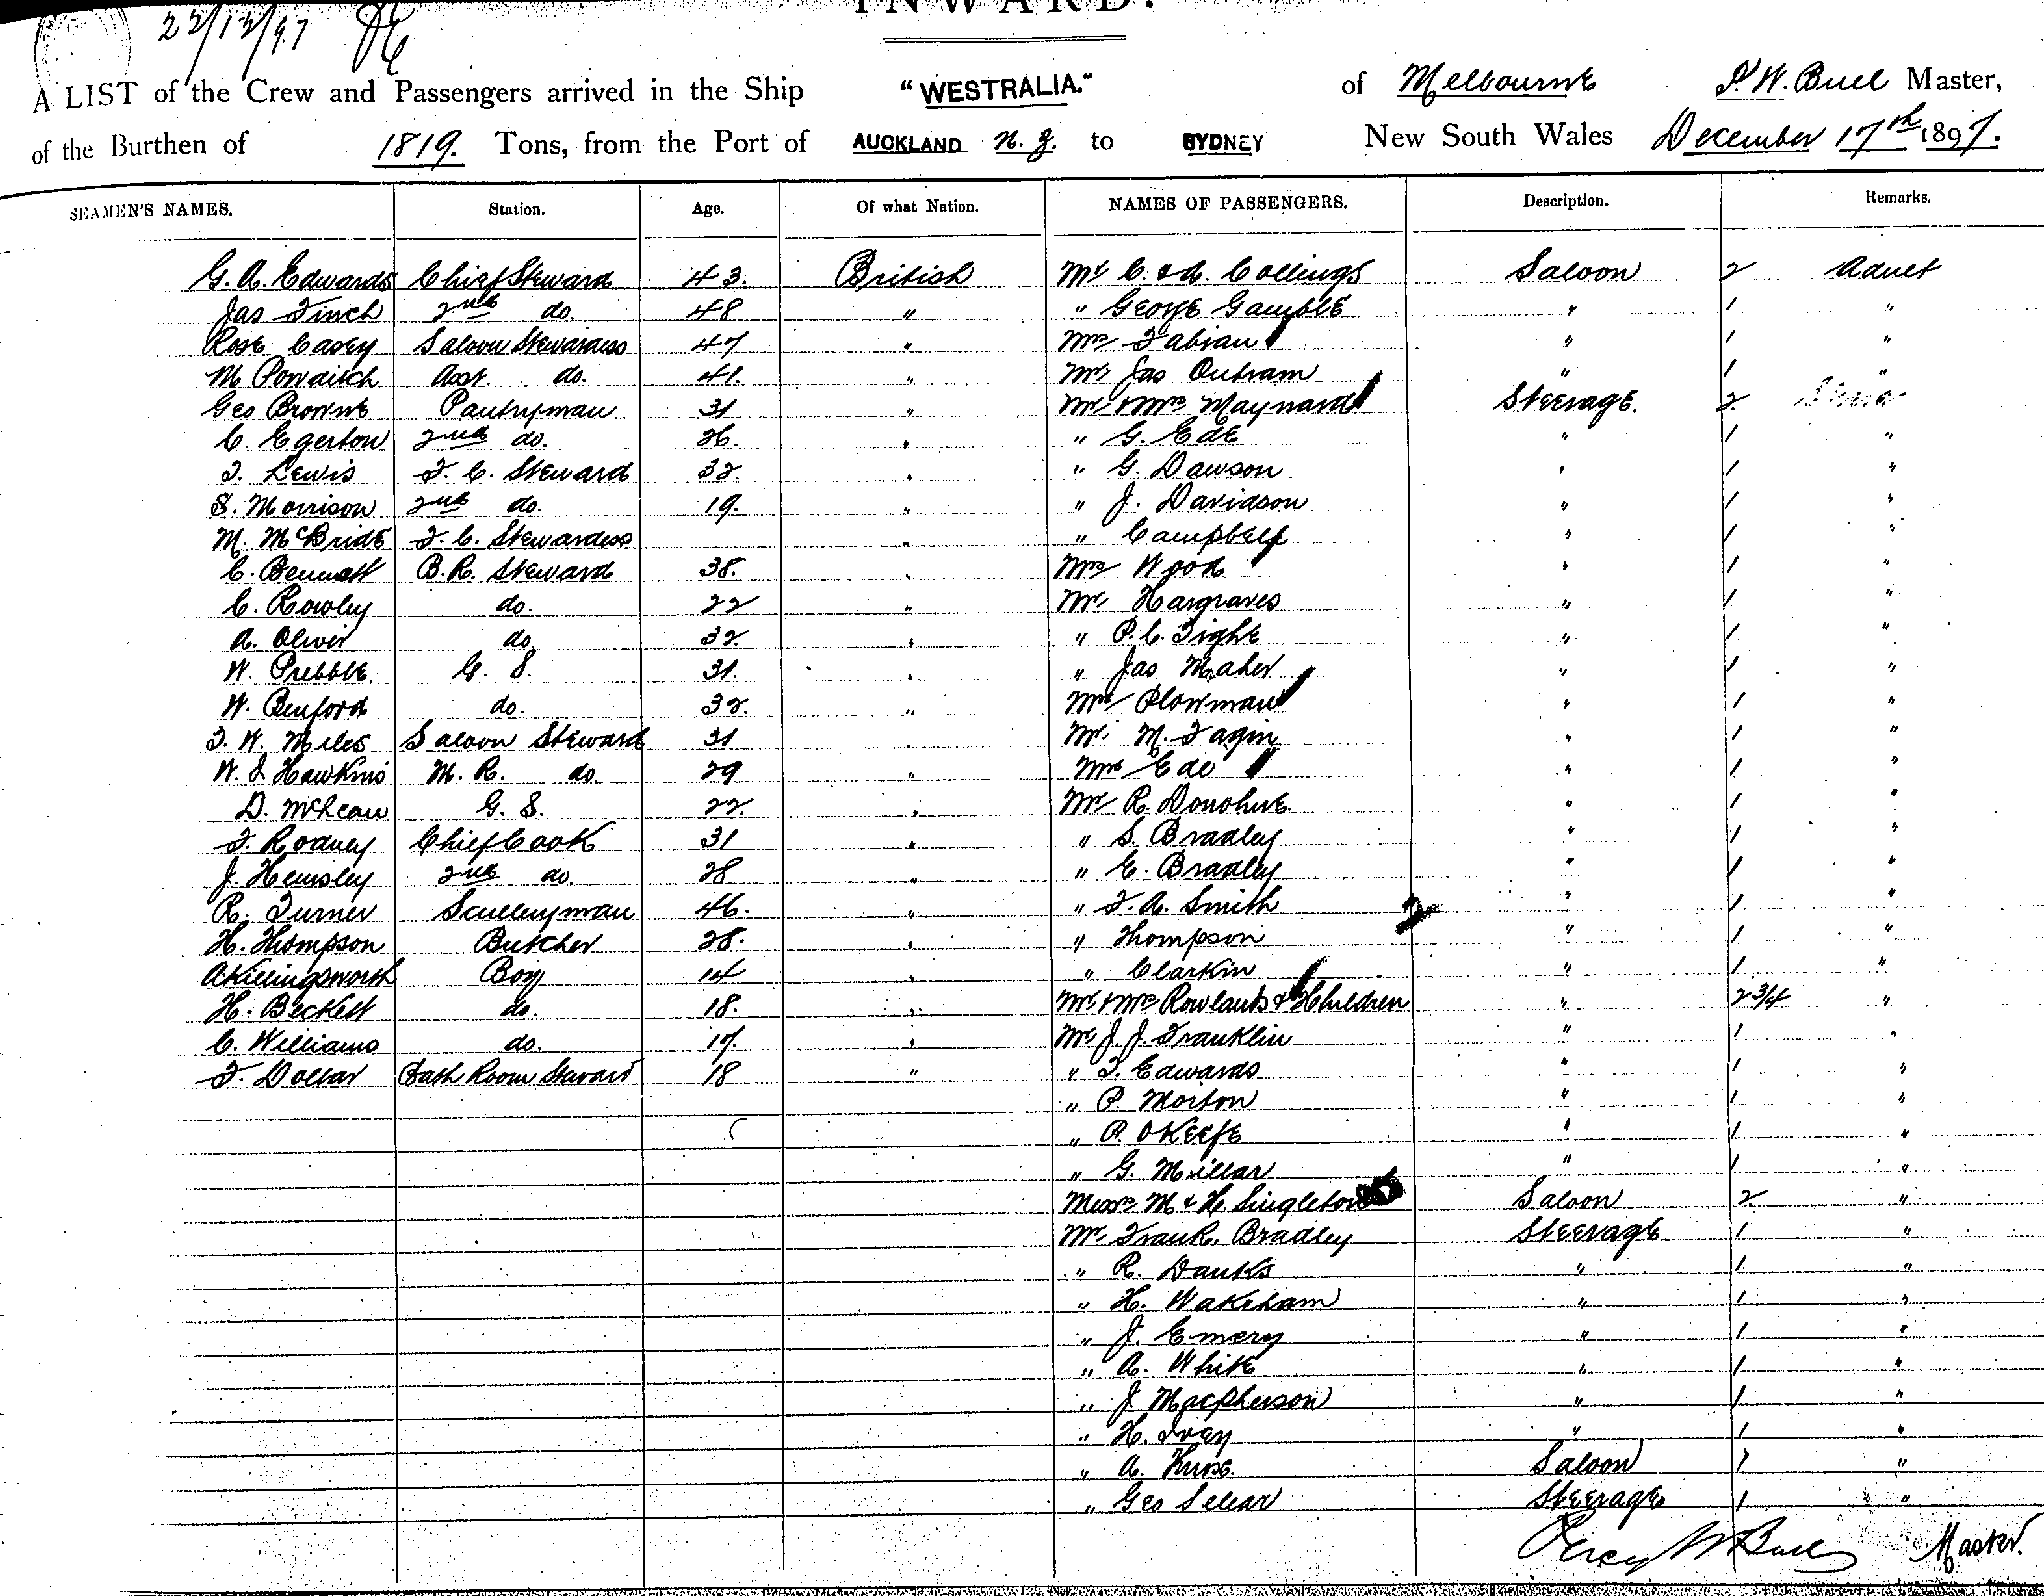 INWARD.
22/12/97
A LIST of the Crew and Passengers arrived in the Ship "WESTRALIA." of Melbourne P. W. Bull Master,
of the Burthen of 1819. Tons, from the Port of AUCKLAND N. Z. to SYDNEY New South Wales December 17th 1897.
SEAMEN'S NAMES. Station. Age. Of what Nation. NAMES OF PASSENGERS. Description. Remarks.
G. A. Edwards Chief Steward 43. British Mr C. & A. Collings Saloon 2 Adult
Jas Finch 2nd do. 48 " " George Gamble " 1 "
Rose Casey Saloon Stewardess 47 " Mrs Fabian " 1 "
M Powditch Asst do. 41. " Mr Jas Outram " 1 "
Geo Browne Pantryman 31 " Mr & Mrs Maynard Steerage. 2
C. Egerton 2nd do. 26. " " G. Ede " 1 "
T. Lewis F. C. Steward 32. " " G. Dawson " 1 "
S. Morrison 2nd do. 19. " " J. Davidson " 1 "
M. McBride F. C. Stewardess " " Campbell " 1 "
C. Bennett B. R. Steward 38. " Mrs Wood " 1 "
C. Rowley do. 22 " Mr Hargraves " 1 "
A. Oliver do. 32. " " P. C. Tighe " 1 "
W. Prebble. G. S. 31. " " Jas Maher " 1 "
W. Benford do. 32. " Mrs Plowman " 1 "
F. W. Miles Saloon Steward 31 " Mr M. Fagin " 1 "
W. J. Hawkins M. R. do. 29 " Mrs Ede " 1 "
D. McLean G. S. 22. " Mr R. Donohue " 1 "
F. Rodney Chief Cook 31 " " S. Bradley " 1 "
J. Hemsley 2nd do. 28 " " E. Bradley " 1 "
R. Turner Sculleryman 46. " " F. A. Smith " 1 "
H. Thompson Butcher 28. " " Thompson " 1 "
A Killingsworth Boy 14 " " Clarkin " 1 "
H. Beckett do. 18. " Mr & Mrs Rowlands & Children " 2 3/4 "
C. Williams do. 17. " Mr J. J. Franklin " 1 "
F. Dollar Bath Room Steward 18 " " T. Edwards " 1 "
" P. Morton " 1 "
" P. OKeefe " 1 "
" G. Millar " 1 "
Misses M & H Singleton Saloon 2 "
Mr Frank. Bradley Steerage 1 "
" R. Danks " 1 "
" H. Wakeham " 1 "
" J. Emery " 1 "
" A. White " 1 "
" J Macpherson " 1 "
" H. Ivey " 1 "
" A. Knox. Saloon 1 "
" Geo Selear Steerage 1 "
Percy W Bull Master.